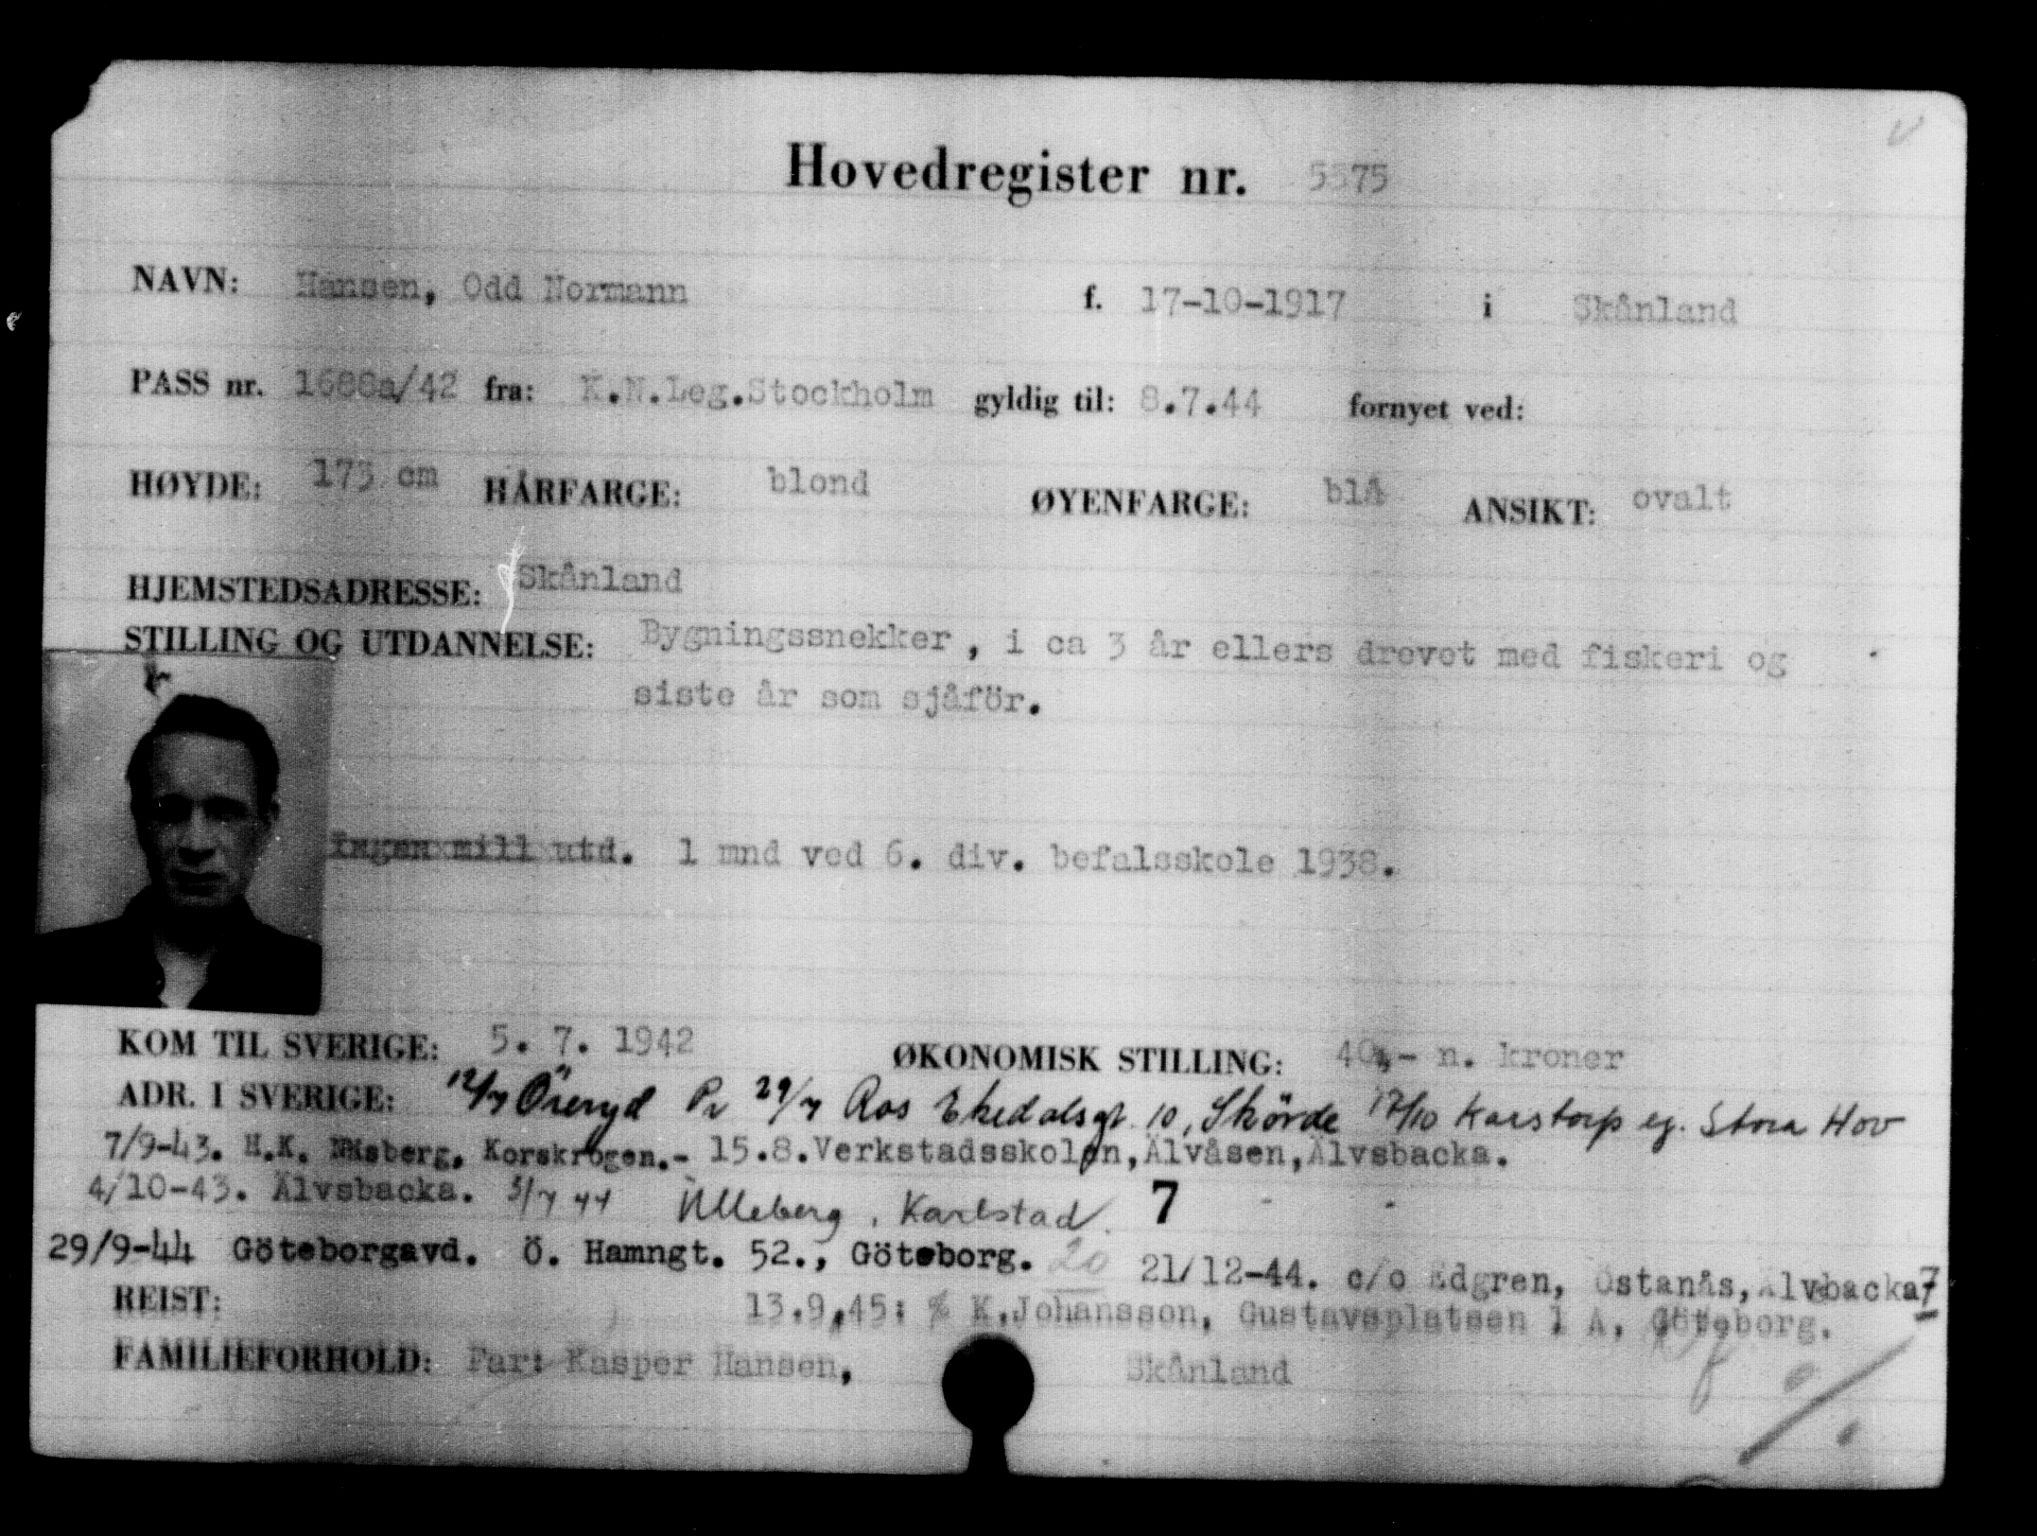 Hovedregister nr. 5575
NAVN: Hansen, Odd Normann f. 17-10-1917 i Skånland
PASS nr. 1688a/42 fra: K.N.Leg.Stockholm gyldig til: 8.7.44 fornyet ved:
HØYDE: 173 cm HÅRFARGE: blond ØYENFARGE: blå ANSIKT: ovalt
HJEMSTEDSADRESSE: Skånland
STILLING OG UTDANNELSE: Bygningssnekker, i ca 3 år ellers drevet med fiskeri og
siste år som sjåför.
Ingen mill utd. 1 mnd ved 6. div. befalsskole 1938.
KOM TIL SVERIGE: 5. 7. 1942 ØKONOMISK STILLING: 40,- n. kroner
ADR. I SVERIGE: 12/7 Öreryd Pr 29/7 Ros Ekedalsgt 10, Skövde 17/10 Karstorp eg. Stora Hov
7/9-43. H.K. Näsberg, Korskrogen.- 15.8.Verkstadsskolen, Älvåsen, Älvsbacka.
4/10-43. Älvsbacka. 3/7 44 Ulleberg, Karlstad. 7
29/9-44 Göteborgavd. Ö. Hamngt. 52., Göteborg. 20 21/12-44. c/o Edgren, Östanås, Älvsbacka 7
REIST: 13.9.45: % K.Johansson, Gustavsplatsen 1 A, Göteborg.
FAMILIEFORHOLD: Far: Kasper Hansen, Skånland